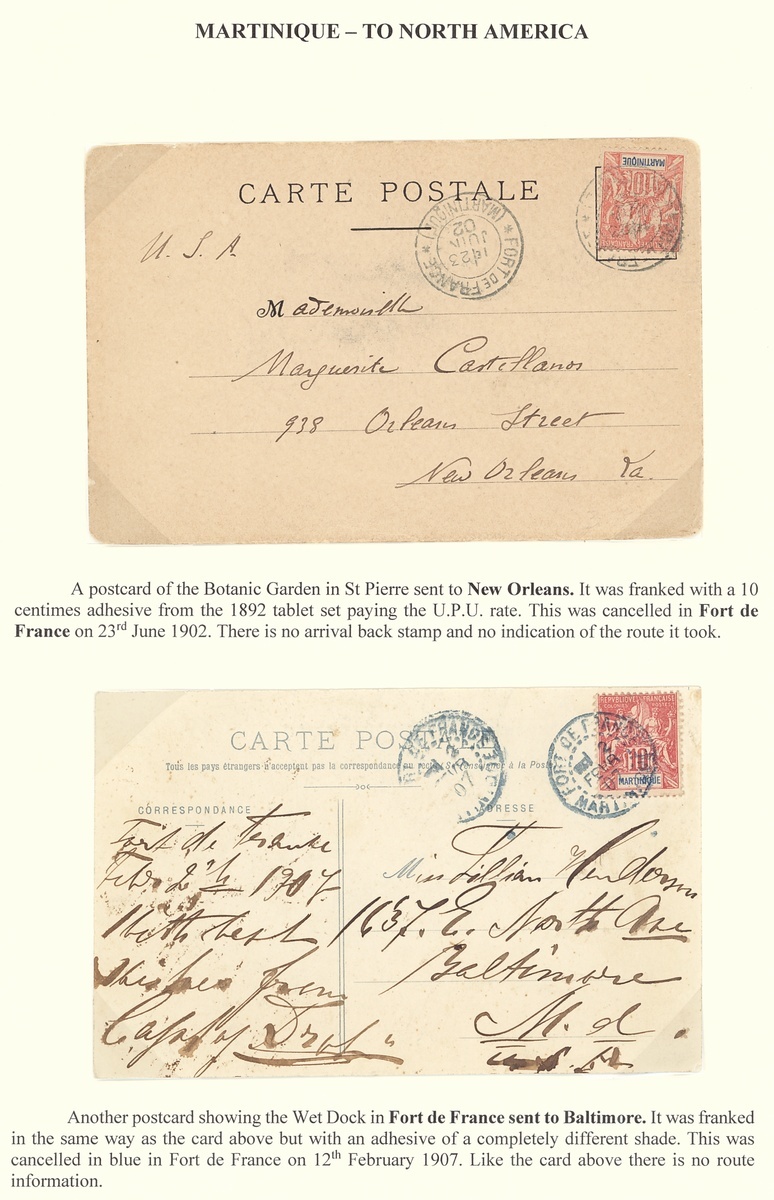 MARTINIQUE – TO NORTH AMERICA
CARTE POSTALE
MARTINIQUE
10
FORT DE FRANCE
(MARTINIQUE)
23
JUIN
02
U. S. A.
Mademoiselle
Marguerite Castellanos
938 Orleans Street
New Orleans La.
A postcard of the Botanic Garden in St Pierre sent to New Orleans. It was franked with a 10
centimes adhesive from the 1892 tablet set paying the U.P.U. rate. This was cancelled in Fort de
France on 23rd June 1902. There is no arrival back stamp and no indication of the route it took.
CARTE POSTALE
Tous les pays étrangers n'acceptent pas la correspondance au recto
à la Poste
REPUBLIQUE FRANÇAISE
COLONIES POSTES
10
MARTINIQUE
FORT DE FRANCE
07
CORRESPONDANCE
ADRESSE
Fort de France
Feby 2nd 1907
With best
Wishes from
Miss Lillian Henderson
1637. E. North Ave
Baltimore
M. d
U. S. A
Another postcard showing the Wet Dock in Fort de France sent to Baltimore. It was franked
in the same way as the card above but with an adhesive of a completely different shade. This was
cancelled in blue in Fort de France on 12th February 1907. Like the card above there is no route
information.